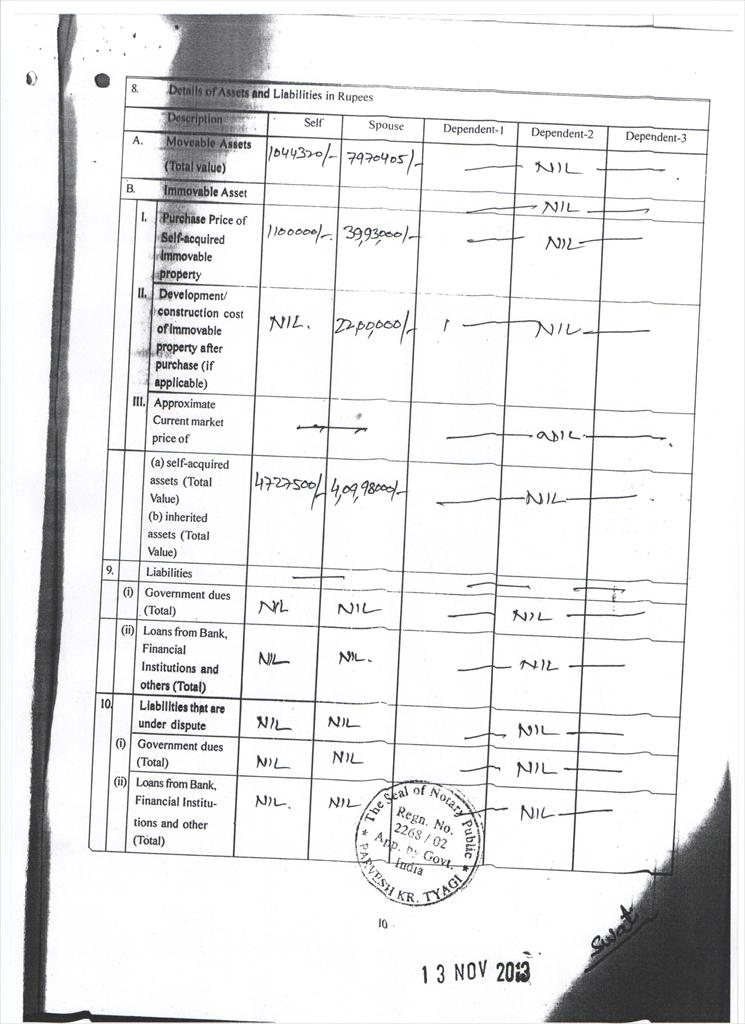 8. Details of Assets and Liabilities in Rupees
Description Self Spouse Dependent-1 Dependent-2 Dependent-3
A. Moveable Assets
(Total value) 1044320/- 7970405/- NIL
B. Immovable Asset NIL
I. Purchase Price of
Self-acquired 1100000/- 39,93,000/- NIL
Immovable
property
II. Development/
construction cost
of Immovable NIL. 2200,000/- NIL
property after
purchase (if
applicable)
III. Approximate
Current market
price of NIL
(a) self-acquired
assets (Total 4727500/- 4,09,98000/- NIL
Value)
(b) inherited
assets (Total
Value)
9. Liabilities
(i) Government dues
(Total) NIL NIL NIL
(ii) Loans from Bank,
Financial NIL NIL.
Institutions and NIL
others (Total)
10. Liabilities that are
under dispute NIL NIL NIL
(i) Government dues
(Total) NIL NIL NIL
(ii) Loans from Bank,
Financial Institu- NIL. NIL NIL
tions and other
(Total)
The Seal of Notary Public
Regn. No.
2268/02
App. by Govt.
India
PARVESH KR. TYAGI
10
Swati
13 NOV 2013